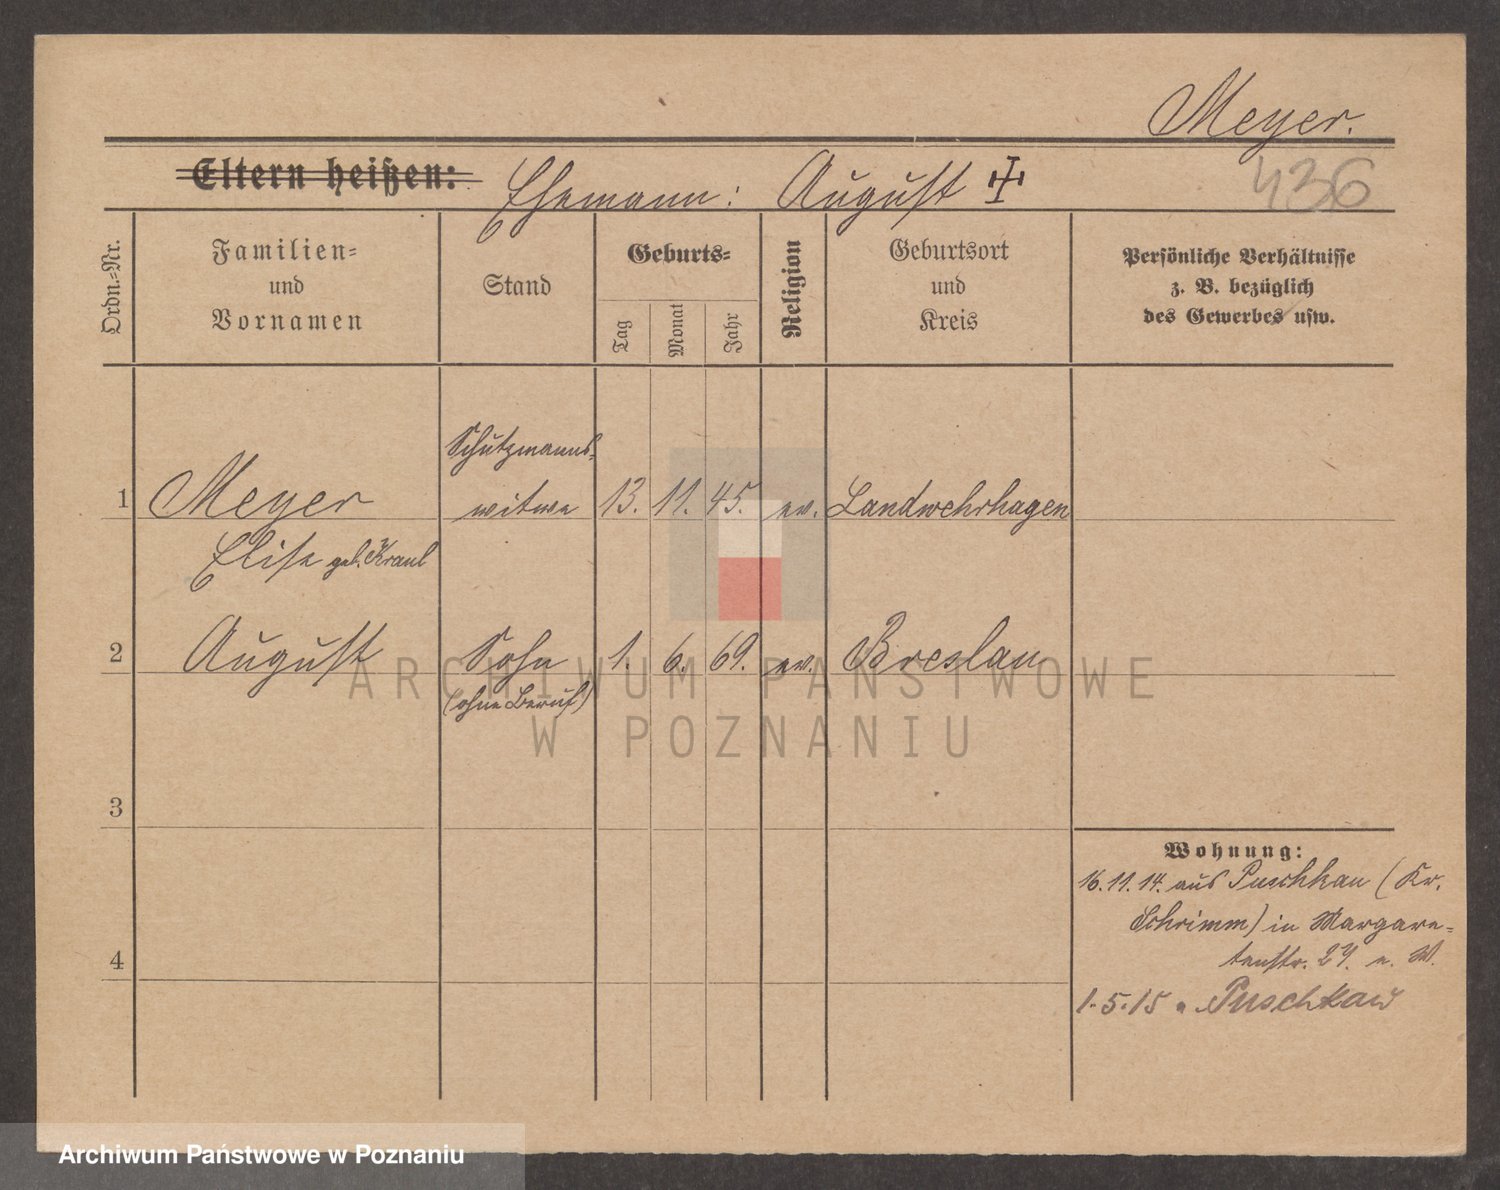 Meyer.
436
Eltern heißen: Ehemann: August
Ordn.-Nr.
Familien-
und
Vornamen
Stand
Geburts-
Tag
Monat
Jahr
Religion
Geburtsort
und
Kreis
Persönliche Verhältnisse
z. B. bezüglich
des Gewerbes usw.
Schutzmanns-
1 Meyer witwe 13. 11. 45. ev. Landwehrhagen
Elise geb. Kraul
2 August Sohn 1. 6. 69. ev. Breslau
(ohne Beruf)
3
4
Wohnung:
16.11.14. aus Puschkau (Kr.
Schrimm) in Margare-
tenstr. 27. e. W.
1.5.15 n. Puschkau
ARCHIWUM PAŃSTWOWE
W POZNANIU
Archiwum Państwowe w Poznaniu